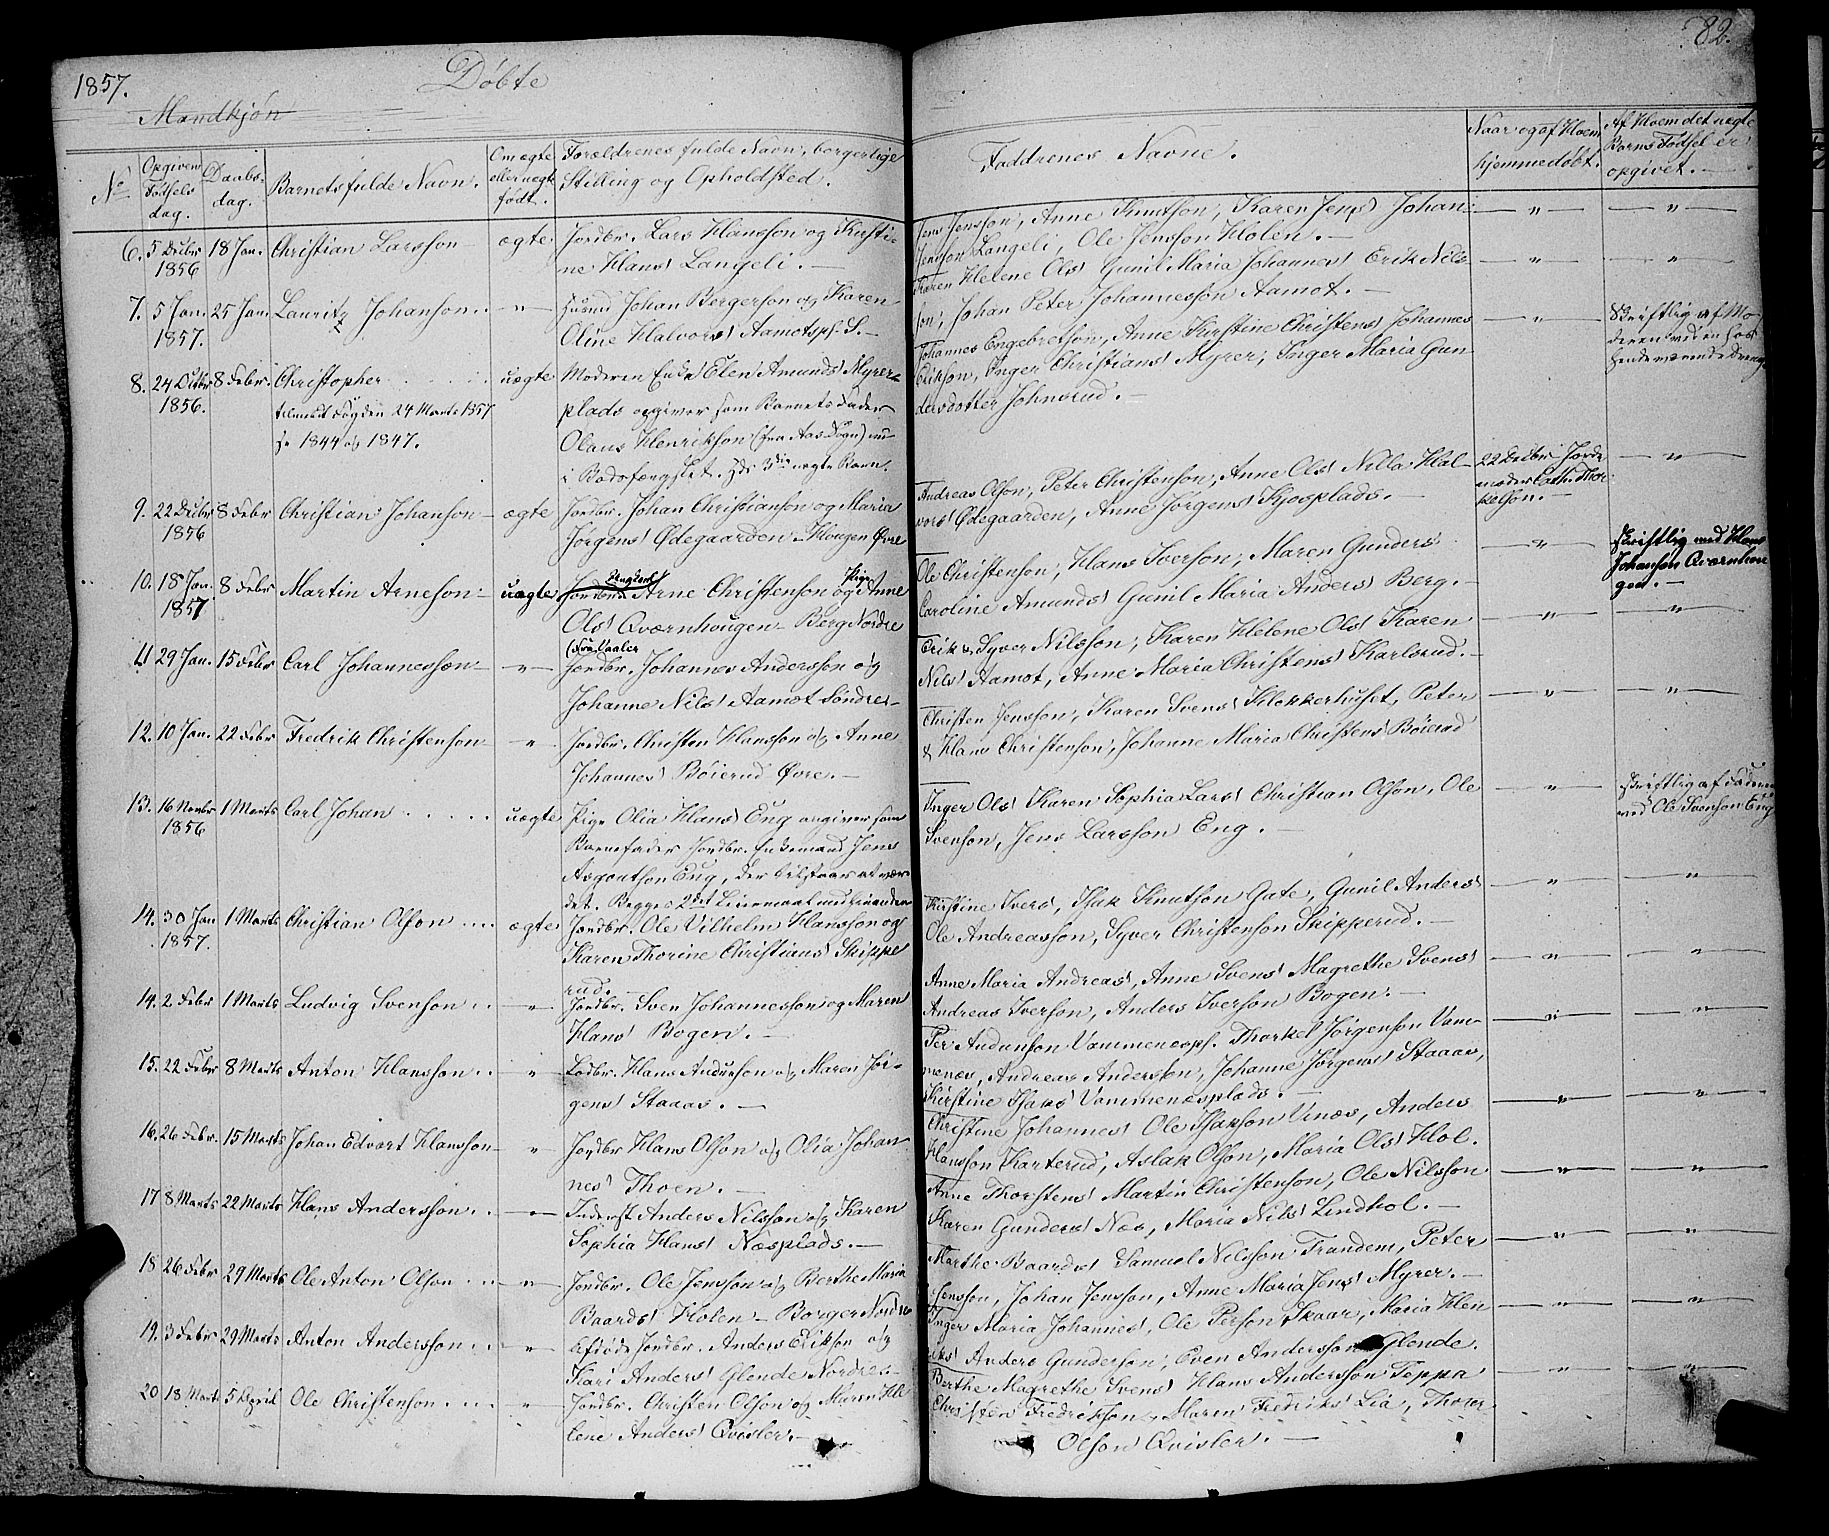 1857. Døbte
Mandkjøn
82.
No
Opgiven Fødsels dag.
Daabs dag.
Barnets fulde Navn.
Om ægte eller uægte født.
Forældrenes fulde Navn, borgerlige Stilling og Opholdsted.
Faddrenes Navne.
Naar og af Hvem hjemmedøbt.
Af Hvem det uægte Barns Fødsel er opgivet.
6. 5 Decbr 1856 18 Jan. Christian Larsson ægte Jordbr. Lars Hansson og Kirsti-
ne Hans Langeli.
Jens Jensson, Anne Knutson, Karen Jens Johan
Jensson Langeli, Ole Jensson Holen.
7. 5 Jan. 1857. 25 Jan. Lauritz Johanson " Husmd Johan Bergerson og Karen
Oline Halvors Aamotspl. S.
Karen Helene Ols Gunil Maria Johannes Erik Nils
son, Johan Peter Johannesson Aamot.
8. 24 Decbr 1856. 8 Febr. Christopher uægte Moderen Enke Elen Amunds Myrer-
tilmeldt Fogden 24 Marts 1857
plads opgiver som Barnets Fader
jr 1844 og 1847.
Olaus Henrikson (fra Aas Sogn) nu
i Bodsfængslet. Hds 3die uægte Barn.
Johannes Engebretson, Anne Kirstine Christens Johannes
Erikson, Inger Christians Myrer, Inger Maria Gun
dersdotter Johnsrud.
Skriftlig af Mo
deren ved en hos
hende værende dreng
9. 22 Decbr 1856 8 Febr Christian Johanson ægte Jordbr. Johan Christianson og Maria
Jørgens Ødegaarden - Haugen Øvre
Andreas Olson, Peter Christenson, Anne Ols Nilla Hal-
vors Ødegaarden, Anne Jørgens Kjosplads.
22 Decbr Jorde
moder Cath. Thor
kelson.
10. 18 Jan. 1857 8 Febr Martin Arneson uægte Ungkarl Arne Christenson og Pige Anne
Ols Qværnhougen - Berg Nordre
Ole Christenson, Hans Iverson, Maren Gunders
Caroline Amunds Gunil Maria Anders Berg.
Skriftlig med Hans
Johanson Qværnhou
gen.
11 29 Jan. 15 Febr Carl Johannesson " (fra Vaaler
Jordbr. Johannes Andersson og
Johanne Nils Aamot Søndre
Erik & Syver Nilsson, Karen Helene Ols Karen
Nils Aamot, Anne Maria Christens Karlsrud.
12. 10 Jan. 22 Febr Fredrik Christenson " Jordbr. Christen Hansson og Anne
Johannes Böierud Øvre.
Christen Jensson, Karen Svens Klokkerhuset, Peter
& Hans Christenson, Johanne Maria Christens Böierud
13. 16 Novbr 1856 1 Marts Carl Johan uægte Pige Olia Hans Eng angiver som
Barnefader Jordbr. Enkemand Jens
Asgoutson Eng, der tilstaar at være
det. Begges 2det Leiermaal med hinanden
Inger Ols Karen Sophia Lars Christian Olson, Ole
Svenson, Jens Larsson Eng.
Skriftlig af Faderen
ved Ole Svenson Eng
14. 30 Jan 1857. 1 Marts Christian Olson ægte Jordbr. Ole Vilhelm Hansson og
Karen Thorine Christians Skippe
rud.
Kirstine Ivers, Isak Knutson Gate, Gunil Anders
Ole Andreasson, Syver Christenson Skipperud.
14. 2 Febr 1 Marts Ludvig Svenson " Jordbr. Sven Johannesson og Maren
Hans Bogen.
Anne Maria Andreas, Anne Svens Magrethe Svens
Andreas Iverson, Anders Iverson Bogen.
15. 22 Febr 8 Marts Anton Hansson " Lodbr. Hans Anderson og Maren Jør-
gens Staaas.
Per Andunson Vammenæspl. Thorkel Jørgenson Vam-
menæs, Andreas Andersson, Johanne Jørgens Staaas,
Kirstine Isaks Vammenæsplads.
16. 26 Febr. 15 Marts Johan Edvart Hansson " Jordbr Hans Olson og Olia Johan
nes Thoen.
Christine Johannes Ole Isakson Vinæs, Anders
Hansson Karterud, Aslak Olson, Maria Ols Hol.
17 8 Marts 22 Marts Hans Andersson " Inderst Anders Nilsson og Karen
Sophia Hans Næsplads.
Anne Thorstens Martin Christenson, Ole Nilsson
Karen Gunders Næs, Maria Nils Lindhol.
18 26 Febr 29 Marts Ole Anton Olson " Jordbr. Ole Jensson og Berthe Maria
Baards Holen - Borger Nordre
Marthe Baards Samuel Nilsson Trandem, Peter
Jensson, Johan Jensson, Anne Maria Jens Myrer.
19. 3 Febr 29 Marts Anton Andersson " Afdøde Jordbr. Anders Erikson og
Kari Anders Glende Nordre.
Inger Maria Johannes, Ole Person Skaar, Maria Hen
riks Anders Gunderson, Even Andersson Glende.
20 18 Marts 5 April Ole Christenson " Jordbr. Christen Olson og Maren He
lene Anders Qvisler.
Berthe Magrethe Svens Hans Andersson Teppa
Christen Fredrikson, Maren Fredriks Lia, Thorer
Olson Qvisler.